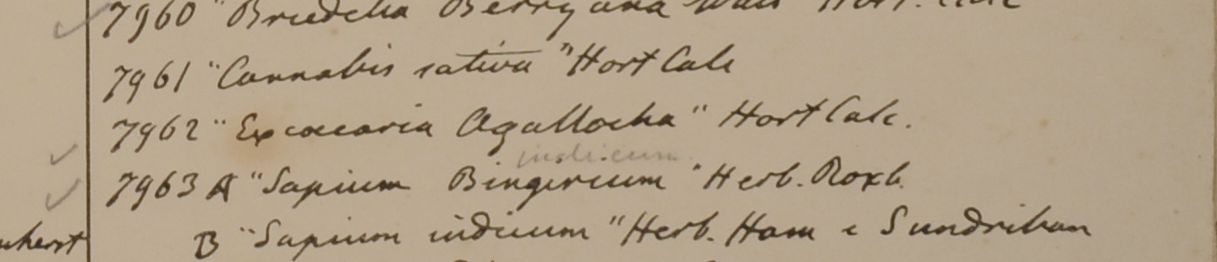 7960 "Briedelia Berryana Wall Hort. Calc
7961 "Cannabis sativa" Hort Calc
7962 "Excoecaria Agallocha" Hort Calc.
indicum
7963 A "Sapium Bingerium" Herb. Roxb.
B "Sapium indicum" Herb. Ham e Sundriban